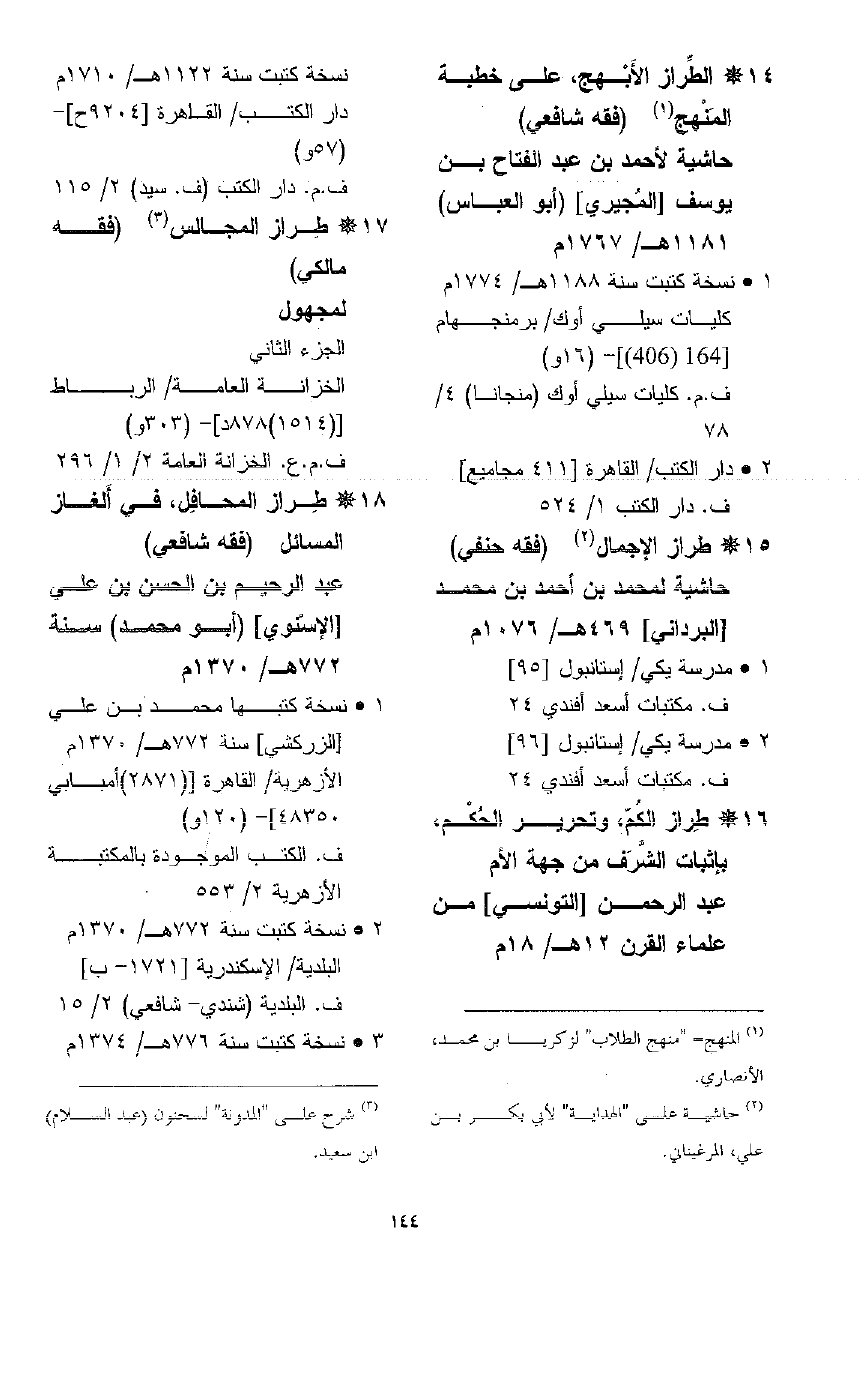 ١٤ ❋ الطِّراز الأَبْهج، على خطبة
المَنْهج(١) (فقه شافعي)
حاشية لأحمد بن عبد الفتاح بن
يوسف [المُجيري] (أبو العباس)
١١٨١هـ/ ١٧٦٧م
١ • نسخة كتبت سنة ١١٨٨هـ/ ١٧٧٤م
كليات سيلي أوك/ برمنجهام
[164 (406)]- (١٦و)
ف.م. كليات سيلي أوك (منجانا) ٤/
٧٨
٢ • دار الكتب/ القاهرة [٤١١ مجاميع]
ف. دار الكتب ١/ ٥٢٤
١٥ ❋ طراز الإجمال(٢) (فقه حنفي)
حاشية لمحمد بن أحمد بن محمد
[البرداني] ٤٦٩هـ/ ١٠٧٦م
١ • مدرسة يكي/ إستانبول [٩٥]
ف. مكتبات أسعد أفندي ٢٤
٢ • مدرسة يكي/ إستانبول [٩٦]
ف. مكتبات أسعد أفندي ٢٤
١٦ ❋ طِراز الكُمّ، وتحرير الحُكْم،
بإثبات الشَّرَف من جهة الأم
عبد الرحمن [التونسي] من
علماء القرن ١٢هـ/ ١٨م
(١) المنهج= "منهج الطلاب" لزكريا بن محمد،
الأنصاري.
(٢) حاشية على "الهداية" لأبي بكر بن
علي، المرغيناني.
نسخة كتبت سنة ١١٢٢هـ/ ١٧١٠م
دار الكتب/ القاهرة [٩٢٠٤ح]-
(٥٧و)
ف.م. دار الكتب (ف. سيد) ٢/ ١١٥
١٧ ❋ طِراز المجالس(٣) (فقه
مالكي)
لمجهول
الجزء الثاني
الخزانة العامة/ الرباط
[(١٥١٤)٨٧٨د]- (٣٠٣و)
ف.م.ع. الخزانة العامة ٢/ ١/ ٢٩٦
١٨ ❋ طِراز المحافِل، في أَلغاز
المسائل (فقه شافعي)
عبد الرحيم بن الحسن بن علي
[الإسنوي] (أبو محمد) سنة
٧٧٢هـ/ ١٣٧٠م
١ • نسخة كتبها محمد بن علي
[الزركشي] سنة ٧٧٢هـ/ ١٣٧٠م
الأزهرية/ القاهرة [(٢٨٧١)أمبابي
٤٨٣٥٠]- (١٢٠و)
ف. الكتب الموجودة بالمكتبة
الأزهرية ٢/ ٥٥٣
٢ • نسخة كتبت سنة ٧٧٢هـ/ ١٣٧٠م
البلدية/ الإسكندرية [١٧٢١- ب]
ف. البلدية (شندي- شافعي) ٢/ ١٥
٣ • نسخة كتبت سنة ٧٧٦هـ/ ١٣٧٤م
(٣) شرح على "المدونة" لسحنون (عبد السلام)
ابن سعيد.
١٤٤